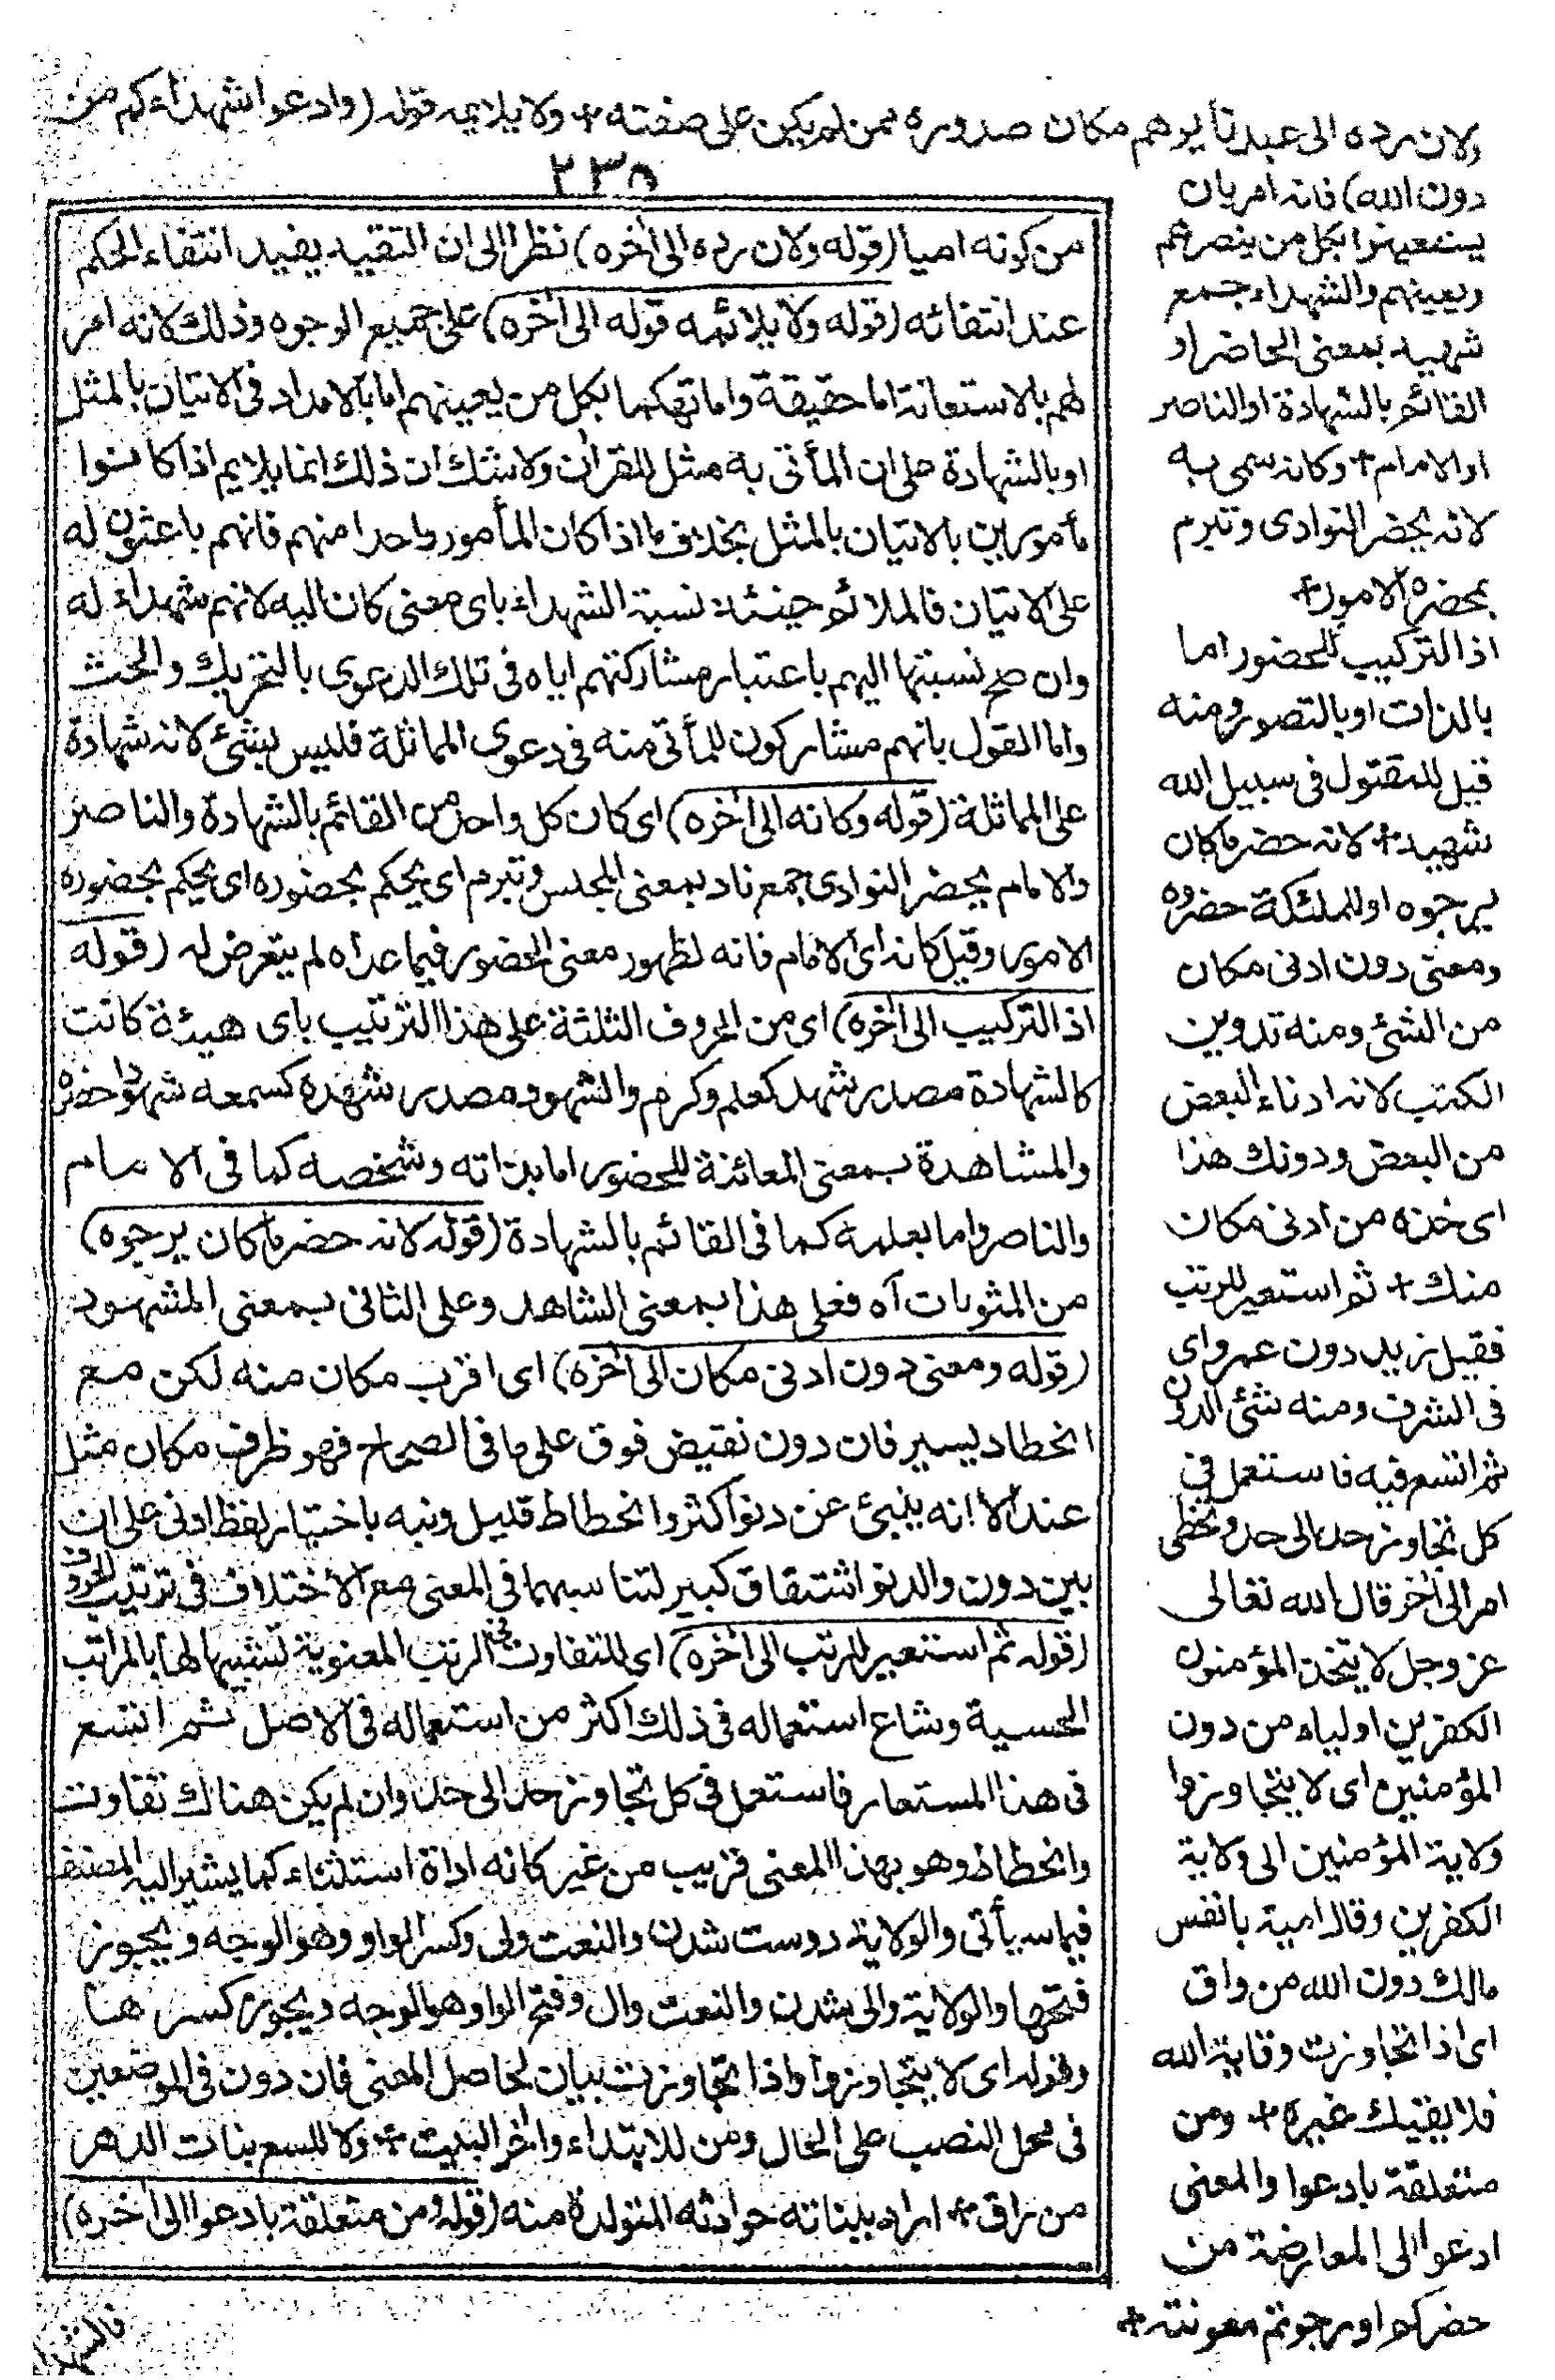 ولان رده الى عبدنا يوهم مكان صدوره ممن لم يكن على صفته + ولا يلايمه قوله (وادعوا شهداءكم من
٢٣٥
دون الله) فانه امر بان
يستعينوا بكل من ينصرهم
ويعينهم والشهداء جمع
شهيد بمعنى الحاضر او
القائم بالشهادة او الناصر
او الامام + وكانه سمى به
لانه يحضر النوادى وتبرم
بمحضره الامور +
اذ التركيب للحضور اما
بالذات او بالتصور ومنه
قيل للمقتول فى سبيل الله
شهيد + لانه حضر ما كان
يرجوه او الملئكة حضروه
ومعنى دون ادنى مكان
من الشئ ومنه تدوين
الكتب لانه ادناء البعض
من البعض ودونك هذا
اى خذه من ادنى مكان
منك + ثم استعير للرتب
فقيل زيد دون عمرو اى
فى الشرف ومنه شئ الدون
ثم اتسع فيه فاستعمل فى
كل تجاوز حد الى حد وتخطى
امر الى اخر قال الله تعالى
عز وجل لا يتخذ المؤمنون
الكفرين اولياء من دون
المؤمنين اى لا يتجاوزوا
ولاية المؤمنين الى ولاية
الكفرين وقال امية يا نفس
مالك دون الله من واق
اى اذا تجاوزت وقاية الله
فلا يقيك غيره + ومن
متعلقة بادعوا والمعنى
ادعوا الى المعارضة من
حضركم او رجوتم معونته +
من كونه اميا (قوله ولان رده الى اخره) نظرا الى ان التقييد يفيد انتفاء الحكم
عند انتفائه (قوله ولا يلائمه قوله الى اخره) على جميع الوجوه وذلك لانه امر
لهم بالاستعانة اما حقيقة واما تهكما بكل من يعينهم اما بالامداد فى الاتيان بالمثل
او بالشهادة على ان المأتى به مثل للقران ولا شك ان ذلك انما يلايم اذا كانوا
مأمورين بالاتيان بالمثل بخلاف ما اذا كان المأمور واحدا منهم فانهم باعثون له
على الاتيان فالملائم حينئذ نسبة الشهداء باى معنى كان اليه لانهم شهداء له
وان صح نسبتها اليهم باعتبار مشاركتهم اياه فى تلك الدعوى بالتحريك والحث
واما القول بانهم مشاركون للمأتى منه فى دعوى المماثلة فليس بشئ لانه شهادة
على المماثلة (قوله وكانه الى اخره) اى كان كل واحد من القائم بالشهادة والناصر
والامام يحضر النوادى جمع ناد بمعنى المجلس وتبرم اى يحكم بحضوره اى يحكم بحضوره
الامور وقيل كانه اى الامام فانه لظهور معنى الحضور فيما عداه لم يتعرض له (قوله
اذ التركيب الى اخره) اى من الحروف الثلثة على هذا الترتيب باى هيئة كانت
كالشهادة مصدر شهد كعلم وكرم والشهود مصدر شهده كسمعه شهودا حضره
والمشاهدة بمعنى المعائنة للحضور اما بذاته وشخصه كما فى الامام
والناصر واما بعلمه كما فى القائم بالشهادة (قوله لانه حضر ما كان يرجوه)
من المثوبات اه فعلى هذا بمعنى الشاهد وعلى الثانى بمعنى المشهود
(قوله ومعنى دون ادنى مكان الى اخره) اى اقرب مكان منه لكن مع
انحطاط يسير فان دون نقيض فوق على ما فى الصحاح فهو ظرف مكان مثل
عند الا انه ينبئ عن دنو اكثر وانحطاط قليل ونبه باختيار لفظ ادنى على ان
بين دون والدنو اشتقاق كبير لتناسبهما فى المعنى مع الاختلاف فى ترتيب الحروف
(قوله ثم استعير للرتب الى اخره) اى للتفاوت فى الرتب المعنوية تشبيها لها بالمراتب
الحسية وشاع استعماله فى ذلك اكثر من استعماله فى الاصل ثم اتسع
فى هذا المستعار فاستعمل فى كل تجاوز حد الى حد وان لم يكن هناك تفاوت
وانحطاط وهو بهذا المعنى قريب من غير كانه اداة استثناء كما يشير اليه المصنف
فيما سيأتى والولاية دوست شدن والنعت ولى وكسر الواو وهو الوجه ويجوز
فتحها والولاية والى شدن والنعت وال وفتح الواو هو الوجه ويجوز كسرها
وقوله اى لا يتجاوزوا واذا تجاوزت بيان لحاصل المعنى فان دون فى الموضعين
فى محل النصب على الحال ومن للابتداء واخر البيت + ولا للسع بنات الدهر
من راق + اراد ببناته حوادثه المتولدة منه (قوله ومن متعلقة بادعوا الى اخره)